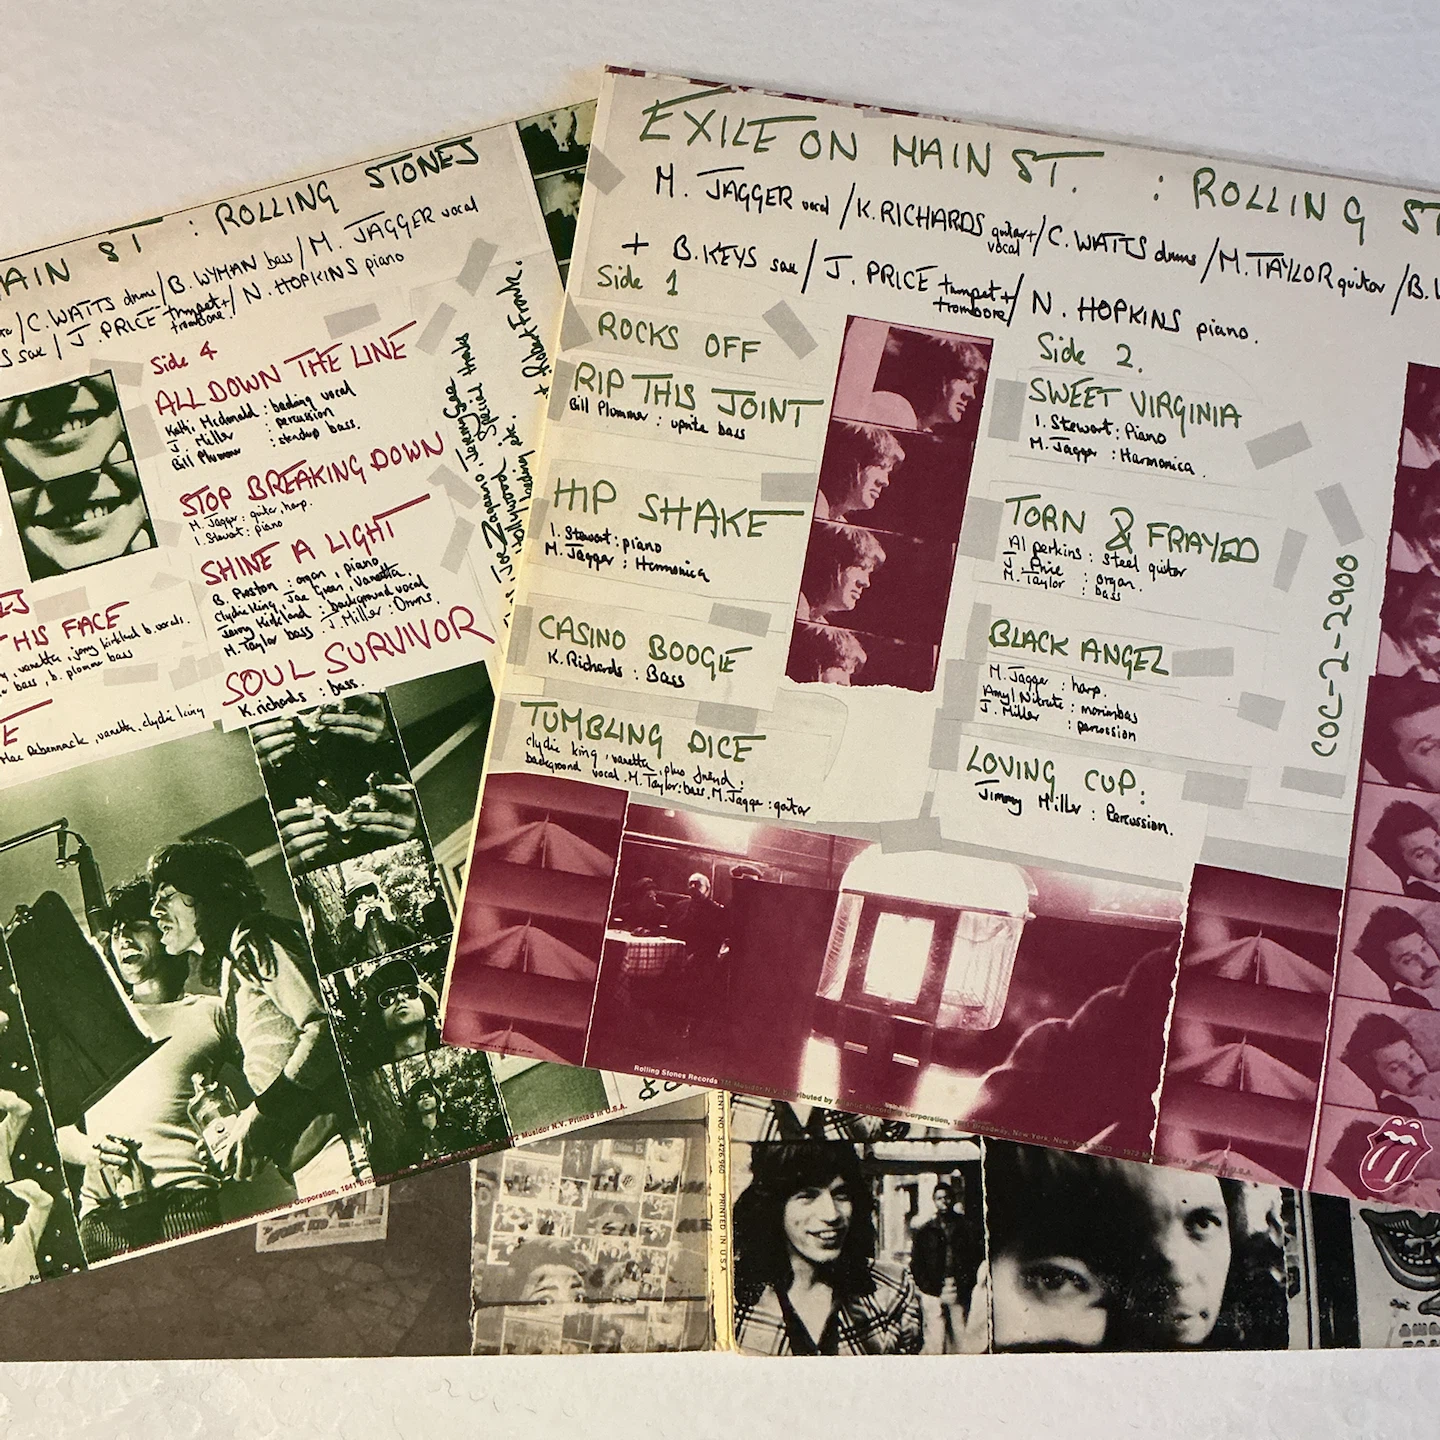 MAIN ST : ROLLING STONES
/C. WATTS drums/B. WYMAN bass/M. JAGGER vocal
sax/J. PRICE trumpet+/N. HOPKINS piano
trombone.
Side 4
ALL DOWN THE LINE
Kathi Mcdonald : backing vocal
J. Miller : percussion
Bill Plummer : standup bass.
STOP BREAKING DOWN
M. Jagger : guitar, harp.
I. Stewart : piano
SHINE A LIGHT
B. Preston : organ, piano
Clydie King, Joe Green, Vanetta,
Jerry Kirkland : background vocal
M. Taylor bass. J. Miller : Drums.
SOUL SURVIVOR
K. richards : bass.
THIS FACE
, vanetta, jerry kirkland b. vocals.
bass, b. plummer bass
E
Mac Rebennack, vanetta, clydie king
+ Robert Frank.
Special thanks
EXILE ON MAIN ST. : ROLLING ST
M. JAGGER vocal /K. RICHARDS guitar+/C. WATTS drums/M. TAYLOR guitar /B.
vocal
+ B. KEYS sax/ J. PRICE trumpet+/ N. HOPKINS piano.
trombone
Side 1
ROCKS OFF
RIP THIS JOINT
Bill Plummer : uprite bass
HIP SHAKE
I. Stewart : piano
M. Jagger : Harmonica
CASINO BOOGIE
K. Richards : Bass
TUMBLING DICE
clydie king, vanetta, plus friend.
background vocal. M. Taylor: bass. M. Jagger : guitar
Side 2.
SWEET VIRGINIA
I. Stewart : Piano
M. Jagger : Harmonica.
TORN & FRAYED
Al perkins : steel guitar
J. Price : organ.
M. Taylor : bass
BLACK ANGEL
M. Jagger : harp.
Amyl Nitrate : marimbas
J. Miller : percussion
LOVING CUP.:
Jimmy Miller : Percussion.
COC-2-2900
Rolling Stones Records TM Musidor N.V. Distributed by Atlantic Recording Corporation, 1841 Broadway, New York, New York 10023 ©1972 Musidor N.V. Printed in U.S.A.
Corporation, 1841
Musidor N.V. Printed in U.S.A.
PATENT NO. 3,426,960 PRINTED IN U.S.A.